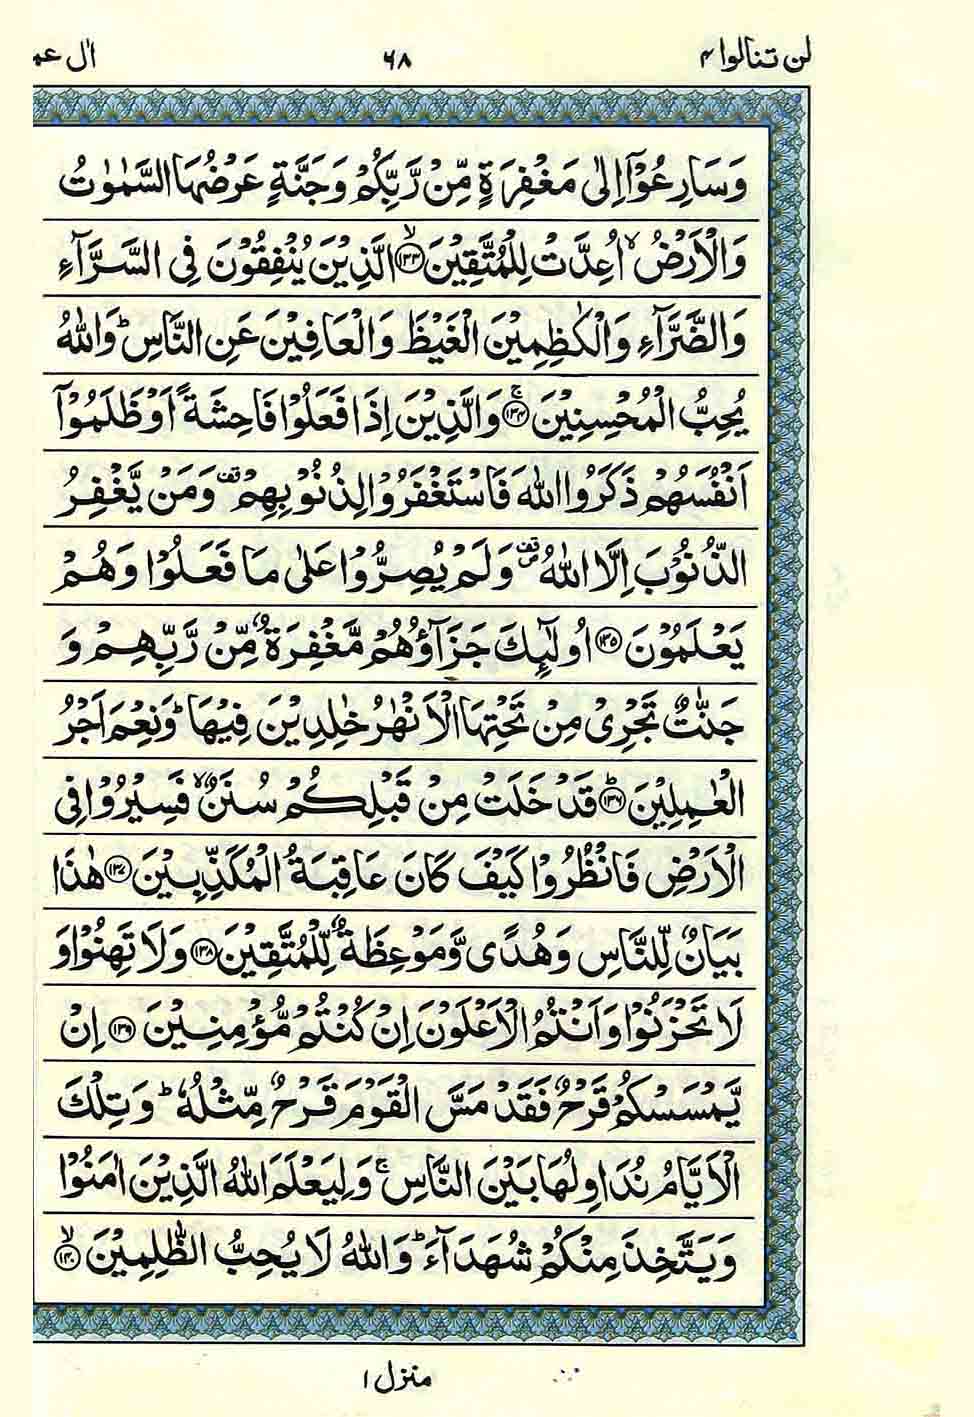 لن تنالوا ٤ ٦٨ اٰل عم
وَسَارِعُوْۤا اِلٰى مَغْفِرَةٍ مِّنْ رَّبِّكُمْ وَجَنَّةٍ عَرْضُهَا السَّمٰوٰتُ
وَالْاَرْضُ ۙ اُعِدَّتْ لِلْمُتَّقِيْنَ ۙ‏﴿۱۳۳﴾ الَّذِيْنَ يُنْفِقُوْنَ فِى السَّرَّآءِ
وَالضَّرَّآءِ وَالْكٰظِمِيْنَ الْغَيْظَ وَالْعَافِيْنَ عَنِ النَّاسِ ؕ وَاللّٰهُ
يُحِبُّ الْمُحْسِنِيْنَ ۚ‏﴿۱۳۴﴾ وَالَّذِيْنَ اِذَا فَعَلُوْا فَاحِشَةً اَوْ ظَلَمُوْۤا
اَنْفُسَهُمْ ذَكَرُوا اللّٰهَ فَاسْتَغْفَرُوْا لِذُنُوْبِهِمْ قف وَمَنْ يَّغْفِرُ
الذُّنُوْبَ اِلَّا اللّٰهُ قف وَلَمْ يُصِرُّوْا عَلٰى مَا فَعَلُوْا وَهُمْ
يَعْلَمُوْنَ ﴿۱۳۵﴾ اُولٰٓئِكَ جَزَآؤُهُمْ مَّغْفِرَةٌ مِّنْ رَّبِّهِمْ وَ
جَنّٰتٌ تَجْرِىْ مِنْ تَحْتِهَا الْاَنْهٰرُ خٰلِدِيْنَ فِيْهَا ؕ وَنِعْمَ اَجْرُ
الْعٰمِلِيْنَ ؕ‏﴿۱۳۶﴾ قَدْ خَلَتْ مِنْ قَبْلِكُمْ سُنَنٌ ۙ فَسِيْرُوْا فِى
الْاَرْضِ فَانْظُرُوْا كَيْفَ كَانَ عَاقِبَةُ الْمُكَذِّبِيْنَ ﴿۱۳۷﴾ هٰذَا
بَيَانٌ لِّلنَّاسِ وَهُدًى وَّمَوْعِظَةٌ لِّلْمُتَّقِيْنَ ﴿۱۳۸﴾ وَلَا تَهِنُوْا وَ
لَا تَحْزَنُوْا وَاَنْتُمُ الْاَعْلَوْنَ اِنْ كُنْتُمْ مُّؤْمِنِيْنَ ﴿۱۳۹﴾ اِنْ
يَّمْسَسْكُمْ قَرْحٌ فَقَدْ مَسَّ الْقَوْمَ قَرْحٌ مِّثْلُهٗ ؕ وَتِلْكَ
الْاَيَّامُ نُدَاوِلُهَا بَيْنَ النَّاسِ ۚ وَلِيَعْلَمَ اللّٰهُ الَّذِيْنَ اٰمَنُوْا
وَيَتَّخِذَ مِنْكُمْ شُهَدَآءَ ؕ وَاللّٰهُ لَا يُحِبُّ الظّٰلِمِيْنَ ۙ‏﴿۱۴۰﴾
منزل ١